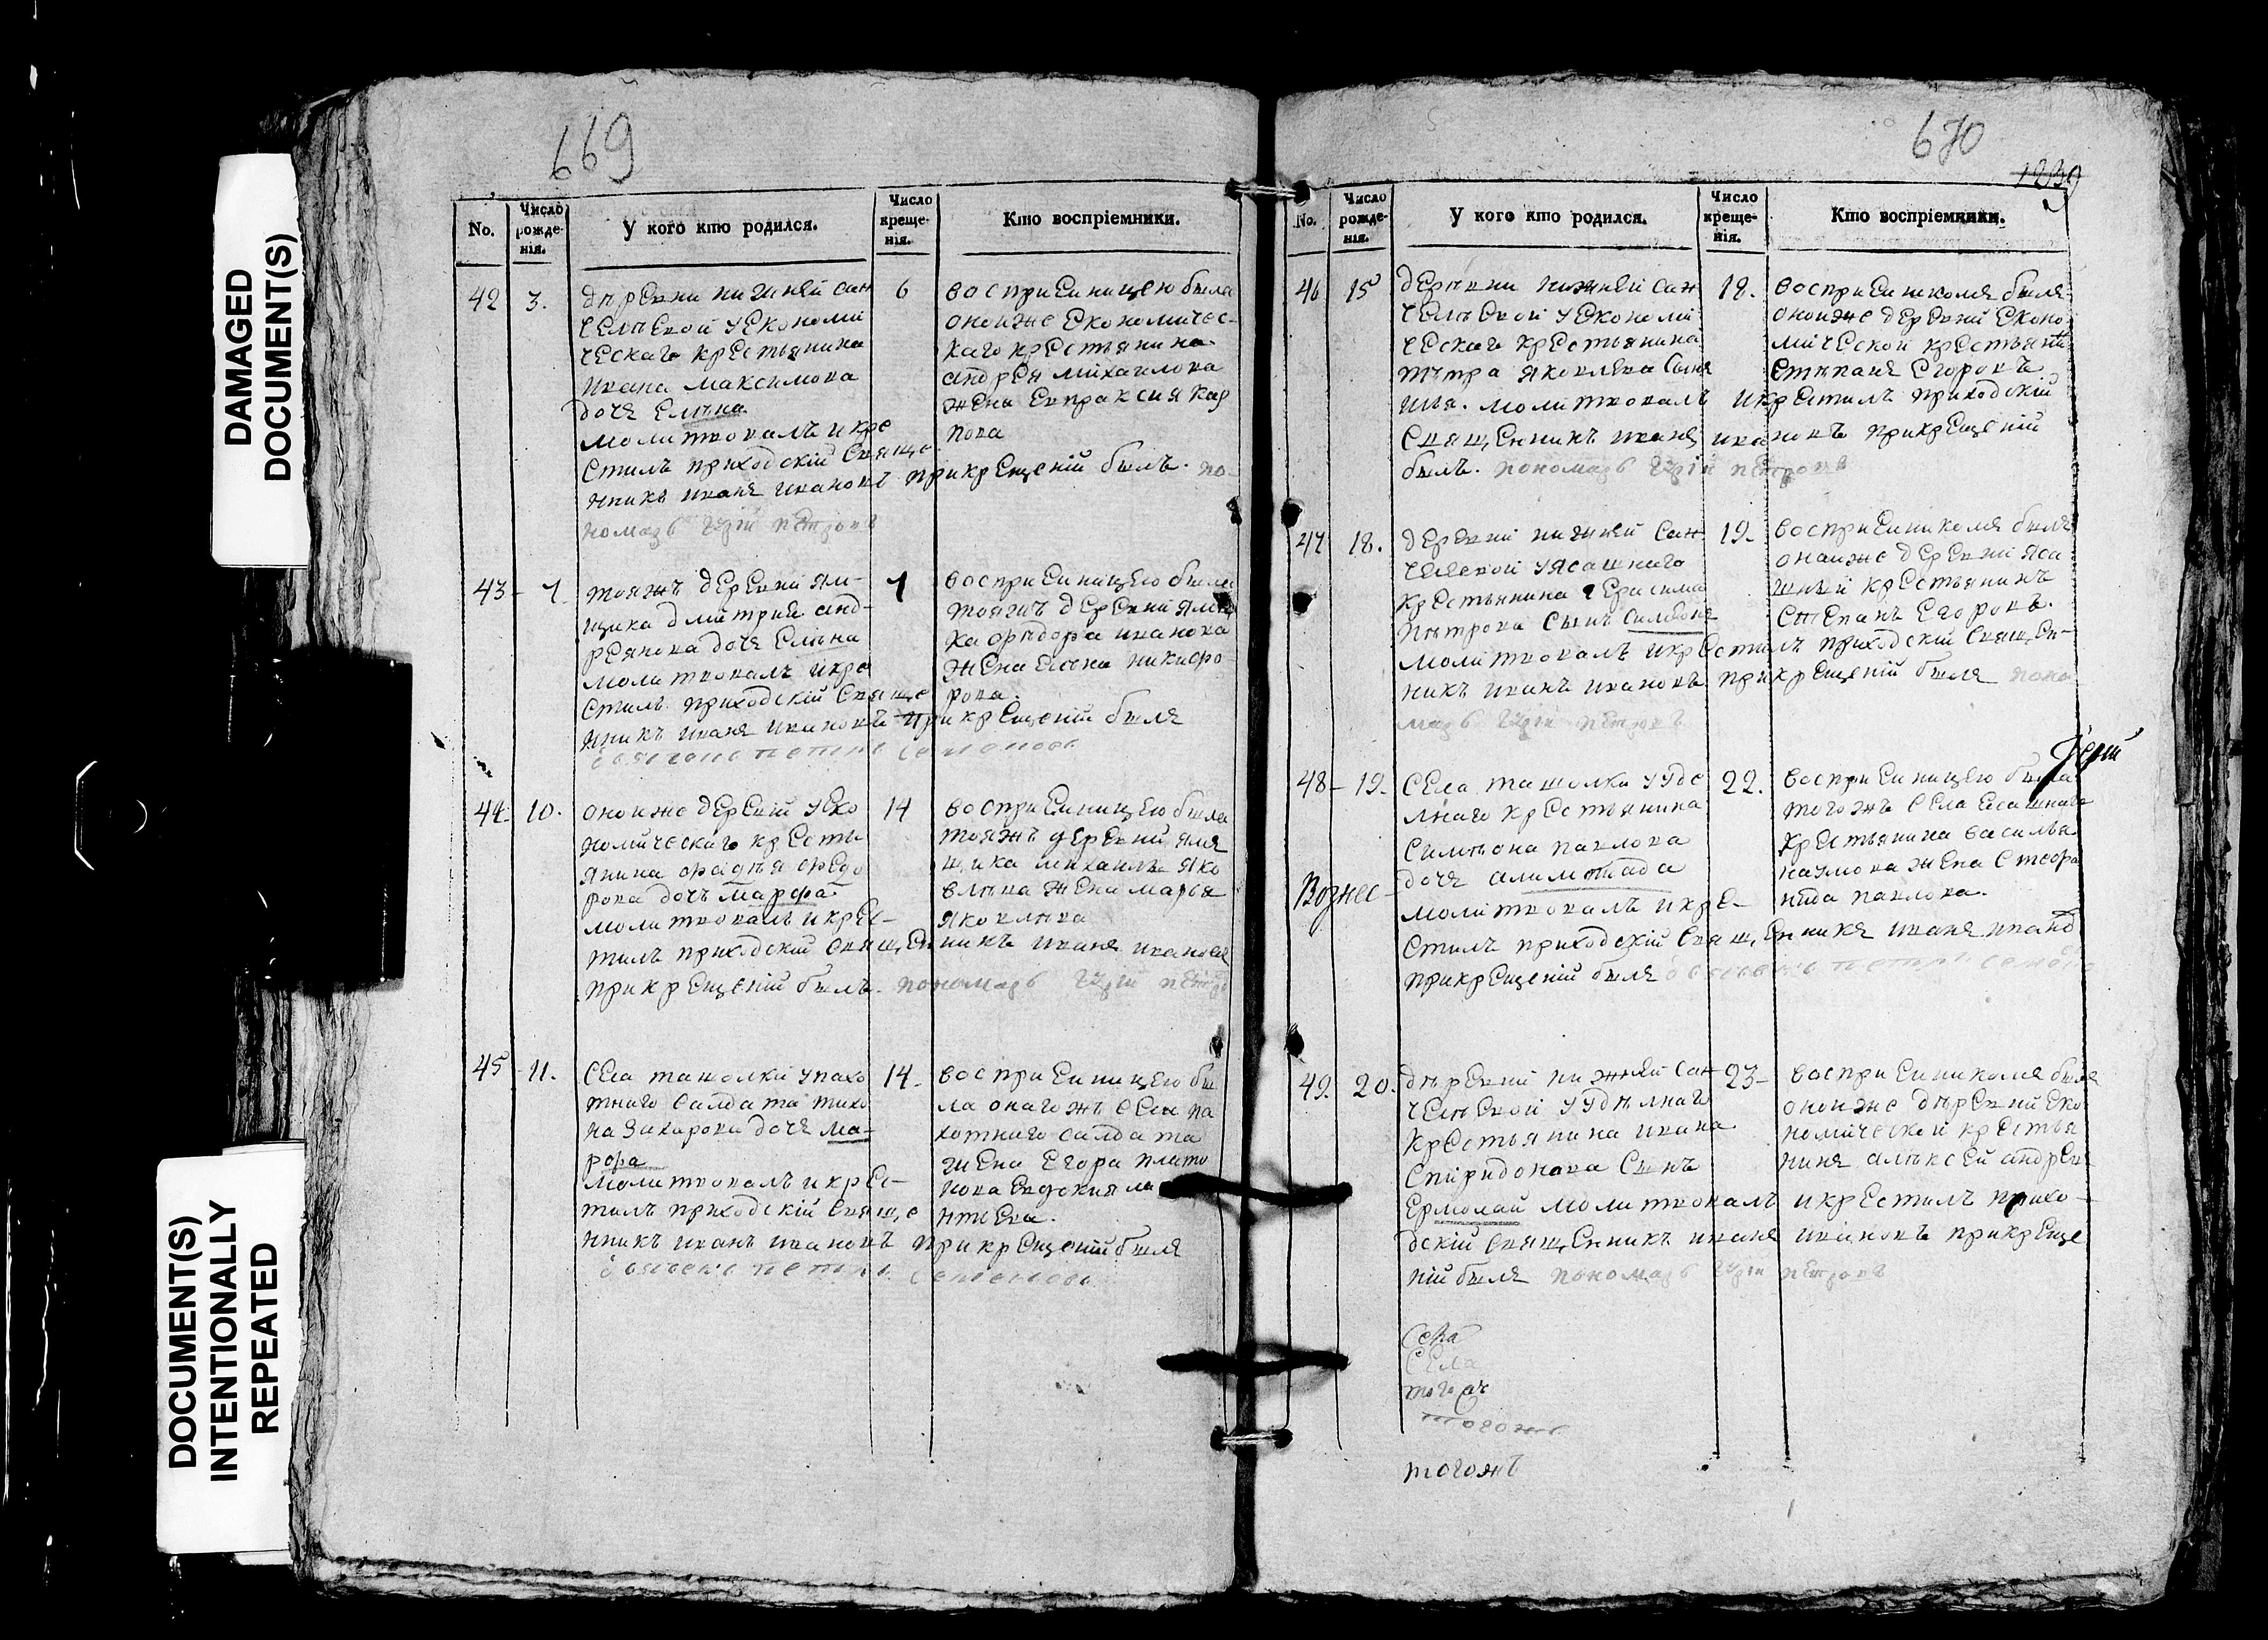 DAMAGED
DOCUMENT(S)
DOCUMENT(S)
INTENTIONALLY
REPEATED
669
No.
Число рожде-нія.
У кого кто родился.
Число креще-нія.
Кто воспріемники.
42 3.
дѣревни нижней сан
челѣевой уекономи
ческаго крестьянина
ивана максимова
дочя елѣна
молитвовалъ икре
стилъ приходскій свяще
нникъ иваня ивановъ прикрещеній былъ. по-
номарь гурій петровъ
6
восприемницею была
оноиже економичес-
каго крестьянина
андрея михаилова
жена евпраксия кар
пова
43 - 7
тояжъ деревни ям-
щика дмитрия анд-
реянова дочя елѣна
молитвовалъ икре
стилъ приходскій свяще
нникъ иваня ивановъ прикрещеній быля
петръ семеновъ
7
восприемницею была
тояжъ деревни
федора иванова
жена елѣна никифо
рова.
44. 10.
оноиже деревни уеко
номическаго кресть
янина фадѣя федо
рова дочъ марфа
молитвовалъ икрес-
тилъ приходскій священникъ иваня ивановя
прикрещеній былъ. пономарь гурій петро
14
восприемницею была
тояжъ деревни ямя
щика михаила яко
влѣва жена марья
яковлѣва
45 - 11.
села ташолки упахо
тнаго салдата тихо
на захарова дочя ма-
рфа
молитвовалъ икрес-
тилъ приходскій свяще
нникъ иванъ ивановъ прикрещеній быля
петръ семеновъ
14.
восприемницею бы
ла онагожъ села па
хотнаго салдата
жена егора плато
нова евдокия ла
нтева.
670
1239
No.
Число рожде-нія.
У кого кто родился.
Число креще-нія.
Кто воспріемники.
46 15
деревни нижней сан
челѣевой уекономи
ческаго крестьянина
пѣтра яковлева сыня
илья. молитвовалъ икрестилъ приходскій
священникъ иваня ивановъ прикрещеній
былъ. пономарь гурій петровъ
18.
восприемникомя быля
оноиже деревни еконо
мической крестьяни
степаня егоровъ
47 18.
деревни нижней сан
челѣевой уясашнаго
крестьянина герасима
пѣтрова сынъ симеоня
молитвовалъ икрестилъ приходскій священ-
никъ иванъ ивановъ прикрещеній быля поно
марь гурій петровъ
19.
восприемникомя быля
онаиже деревни яса
шнъй крестьянинъ
степанъ егоровъ.
гурій
48 - 19.
села ташолки ууде
лнаго крестьянина
симѣона павлова
дочя
молитвовалъ икре-
стилъ приходскій священникя иваня иванов
прикрещеній быля петръ семено
22.
восприемницею была
тогожъ села ясашнаго
крестьянина василья
наумова жена стефа
нида павлова.
Вознес-
49. 20.
дѣревни нижней сан
челѣевой уудѣлнаго
крестьянина ивана
спиридонова сынъ
ермолай молитвовалъ икрестилъ прихо-
дскій священникъ иваня ивановъ прикреще
ній быля пономарь гурій петровъ
23 -
восприемникомя быля
оноиже дѣревни еко
номической крестья
ниня алѣксей андрея
села
тогожъ
тогожъ